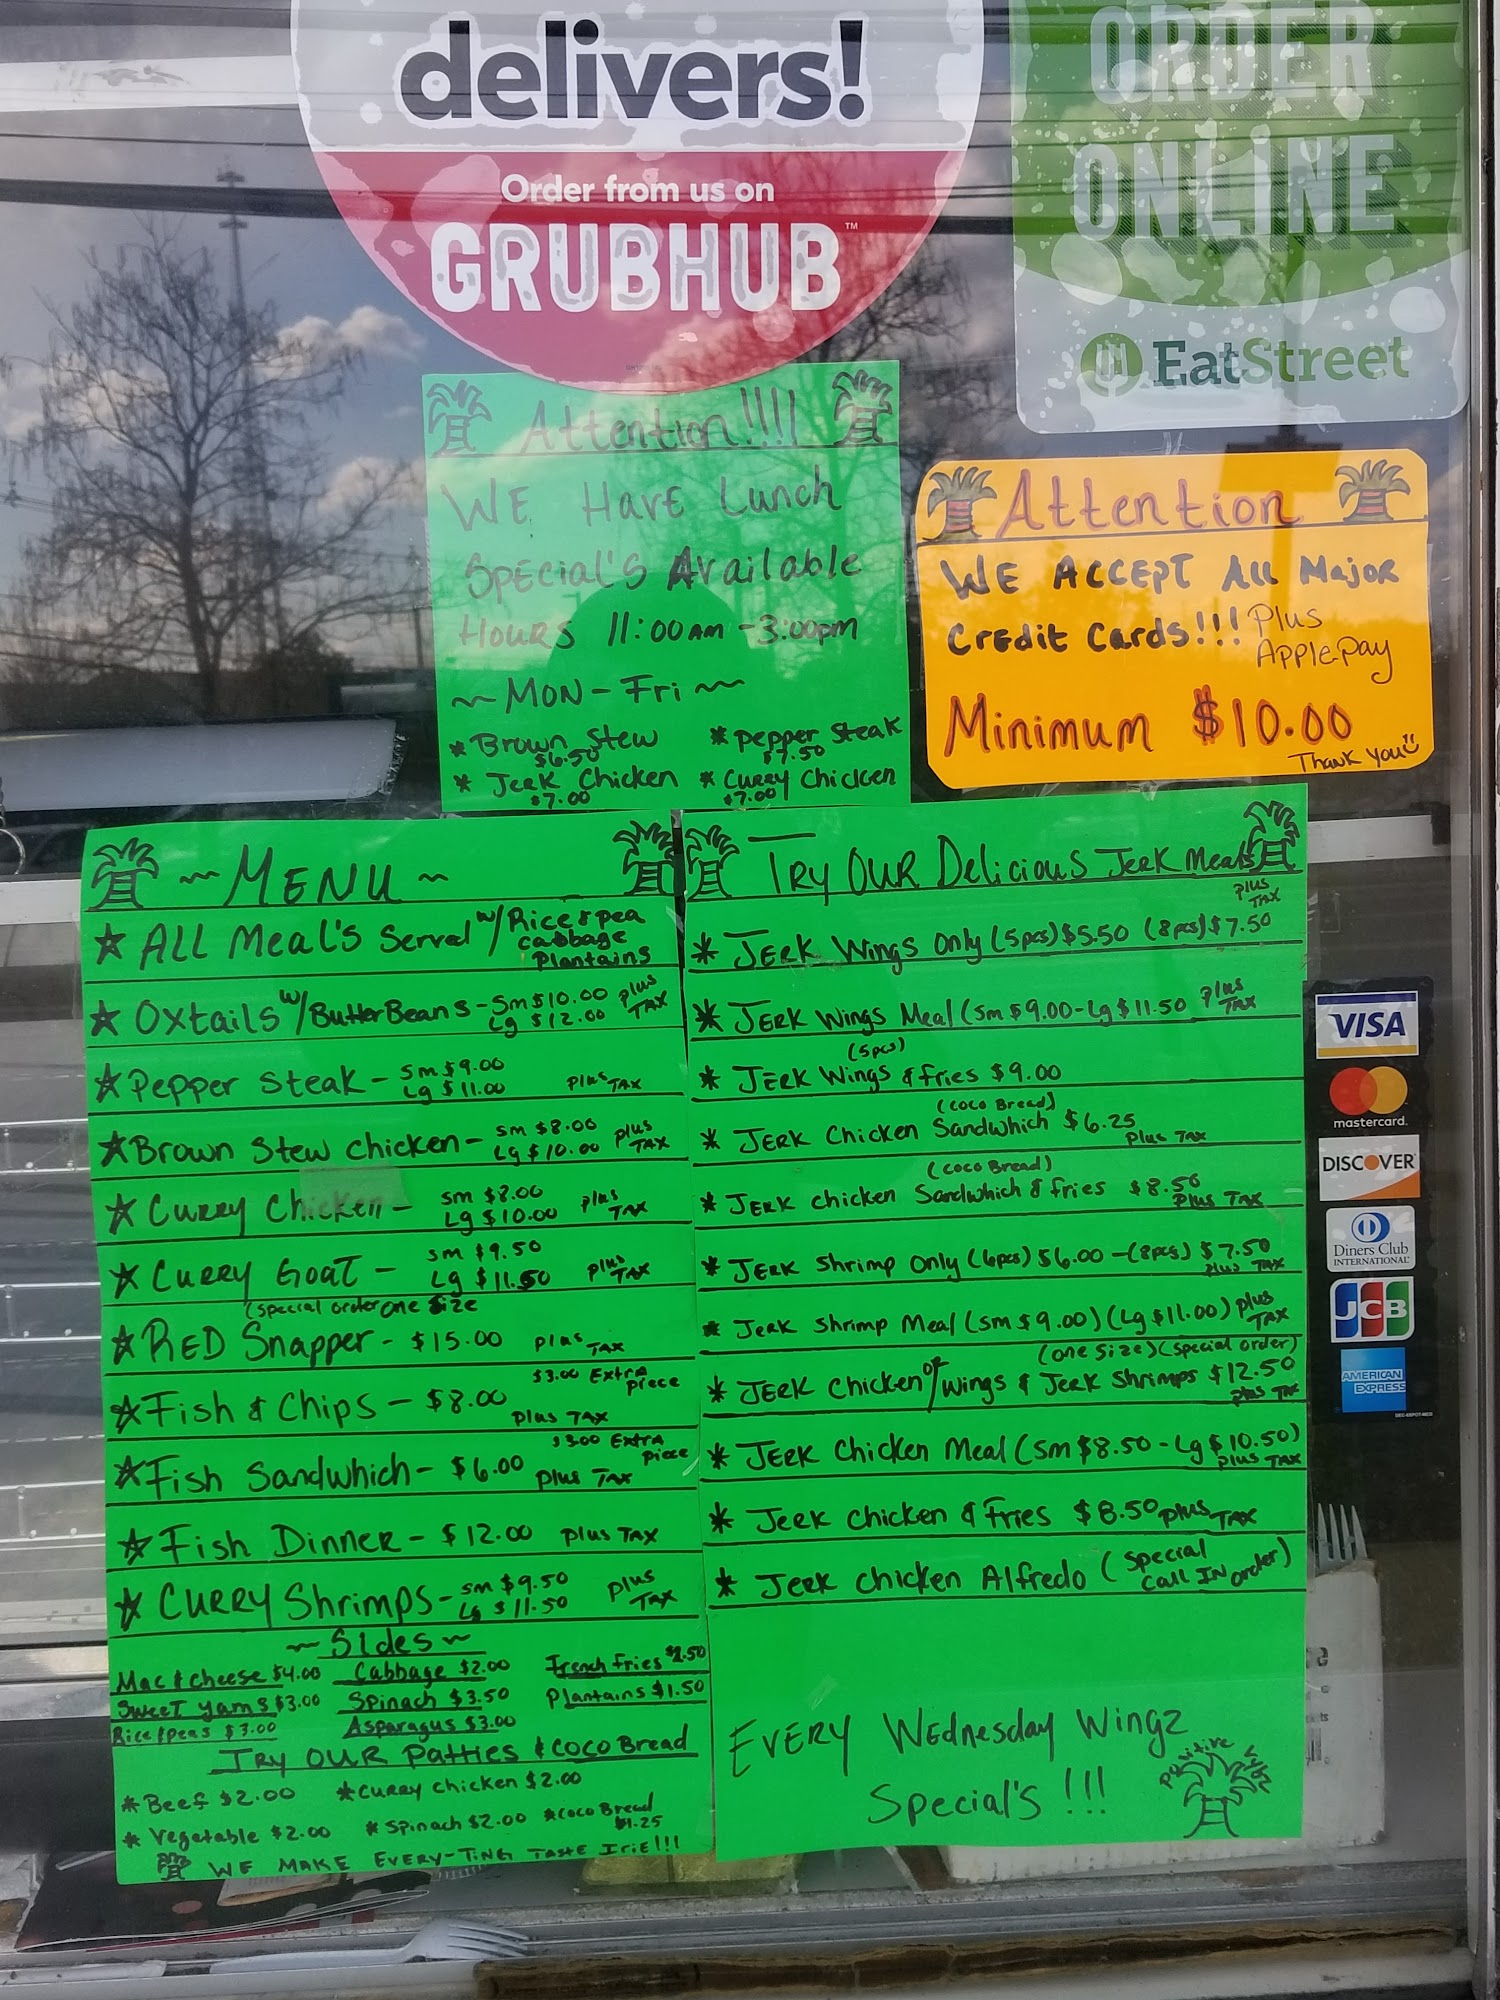 delivers!
Order from us on
GRUBHUB™
ORDER
ONLINE
EatStreet
Attention!!!!
WE Have Lunch
Special's Available
Hours 11:00am - 3:00pm
~ Mon - Fri ~
* Brown Stew * Pepper Steak
$6.50 $7.50
* Jerk Chicken * Curry Chicken
$7.00 $7.00
Attention
WE ACCEPT All Major
Credit Cards!!! Plus
Apple Pay
Minimum $10.00
Thank You
~ MENU ~
ALL Meal's Served w/ Rice & pea
cabbage
Plantains
Oxtails w/ Butter Beans - Sm $10.00 plus
Lg $12.00 TAX
Pepper Steak - Sm $9.00
Lg $11.00 plus TAX
Brown Stew Chicken - Sm $8.00 plus
Lg $10.00 TAX
Curry Chicken - Sm $8.00 plus
Lg $10.00 TAX
Curry Goat - Sm $9.50
Lg $11.50 plus TAX
(special order one size
RED Snapper - $15.00 plus TAX
$3.00 Extra piece
Fish & Chips - $8.00 plus TAX
$3.00 Extra piece
Fish Sandwhich - $6.00 plus TAX
Fish Dinner - $12.00 plus TAX
Curry Shrimps - Sm $9.50 plus
Lg $11.50 TAX
~ Sides ~
Mac & cheese $4.00 Cabbage $2.00 French fries
Sweet yams $3.00 Spinach $3.50 Plantains $1.50
Rice & peas $3.00 Asparagus $3.00
Try OUR Patties & Coco Bread
* Beef $2.00 * Curry chicken $2.00
* Vegetable $2.00 * Spinach $2.00 * Coco Bread
$1.25
WE MAKE EVERY-TING TASTE IRIE!!!
Try OUR Delicious Jerk Meals
plus TAX
* JERK Wings Only (5pcs) $5.50 (8pcs) $7.50
* JERK Wings Meal (Sm $9.00 - Lg $11.50 plus TAX
(5pcs)
* JERK Wings & fries $9.00
(coco Bread)
* JERK Chicken Sandwhich $6.25
plus TAX
(coco Bread)
* JERK chicken Sandwhich & fries $8.50
plus TAX
* JERK Shrimp Only (6pcs) $6.00 - (8pcs) $7.50
plus TAX
* Jerk Shrimp Meal (Sm $9.00) (Lg $11.00) plus TAX
(one size) (special order)
* JERK Chicken or/ wings & Jerk Shrimps $12.50
plus TAX
* JERK Chicken Meal (Sm $8.50 - Lg $10.50)
plus TAX
* Jerk Chicken & Fries $8.50 plus TAX
* Jerk chicken Alfredo (Special
Call IN order)
EVERY Wednesday Wingz
Special's !!!
Positive
VISA
mastercard.
DISCOVER
Diners Club
INTERNATIONAL
JCB
AMERICAN
EXPRESS